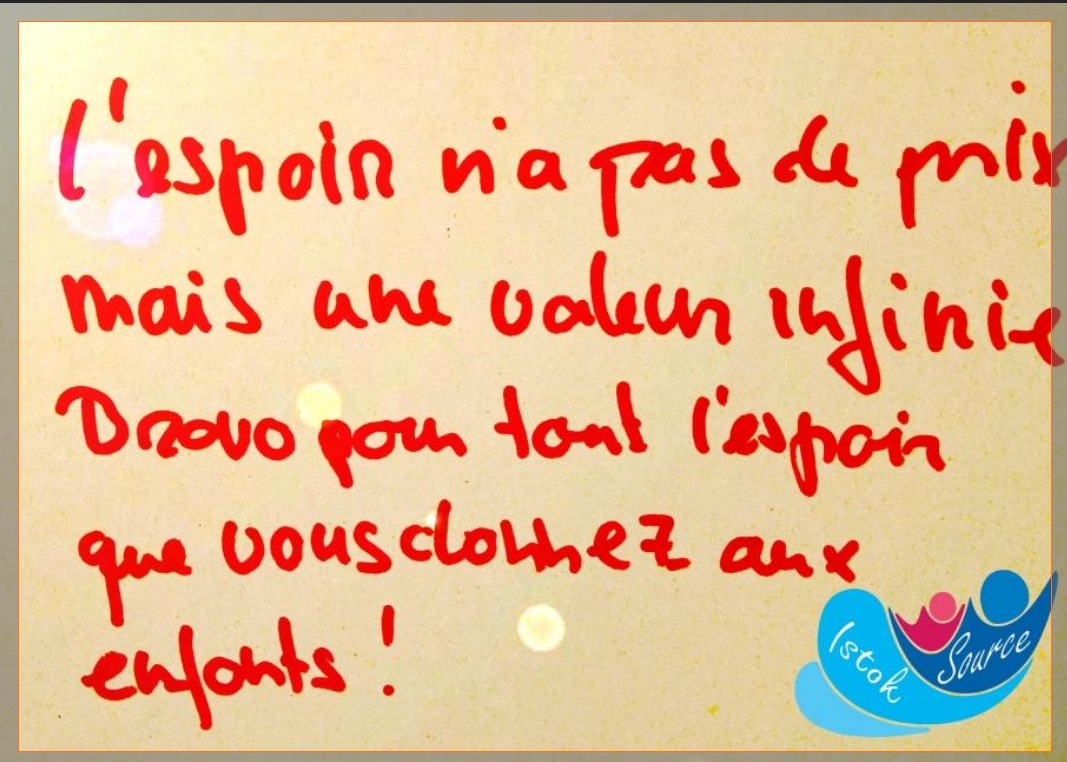 l'espoir n'a pas de prix
mais une valeur infinie
Bravo pour tout l'espoir
que vous donnez aux
enfants !
Istok Source